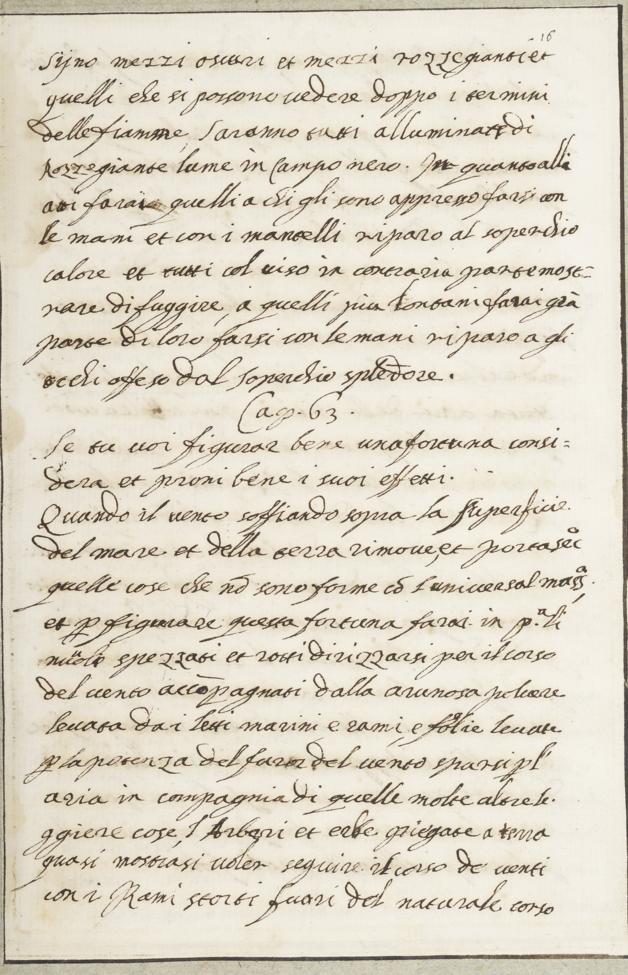 16
sijno mezzi oscuri et mezzi rozzegianti et
quelli che si possono vedere doppo i termini
delle fiamme, saranno tutti alluminati di
Rozzegiante lume in Campo nero. In quanto alli
atti farai quelli a chi gli sono appresso farsi con
le mani et con i mantelli riparo al soperchio
calore et tutti col viso in contraria parte most=
rare di fuggire, a quelli piu lontani farai grā
parte di loro farsi con le mani riparo a gli
occhi offeso dal soperchio splēdore.
Cap. 63.
Se tu voi figurar bene una fortuna consi=
dera et proni bene i suoi effetti.
Quando il vento soffiando sopra la superficie
del mare et della terra rimove, et porta seco
quelle cose che nō sono forme cō l'universal massa.
et p figurare questa fortuna farai in p.ª li
nuoli spezzati et rotti dirizzarsi per il corso
del vento accōpagnati dalla arenosa polvere
levata da i letti marini e rami, e folie levate
p la potenza del furor del vento sparsi pl
aria in compagnia di quelle molte altre le.
ggiere cose, l'Arbori et erbe piegate a terra
quasi mostrasi voler seguire il corso de venti
con i Rami storti fuori del naturale corso